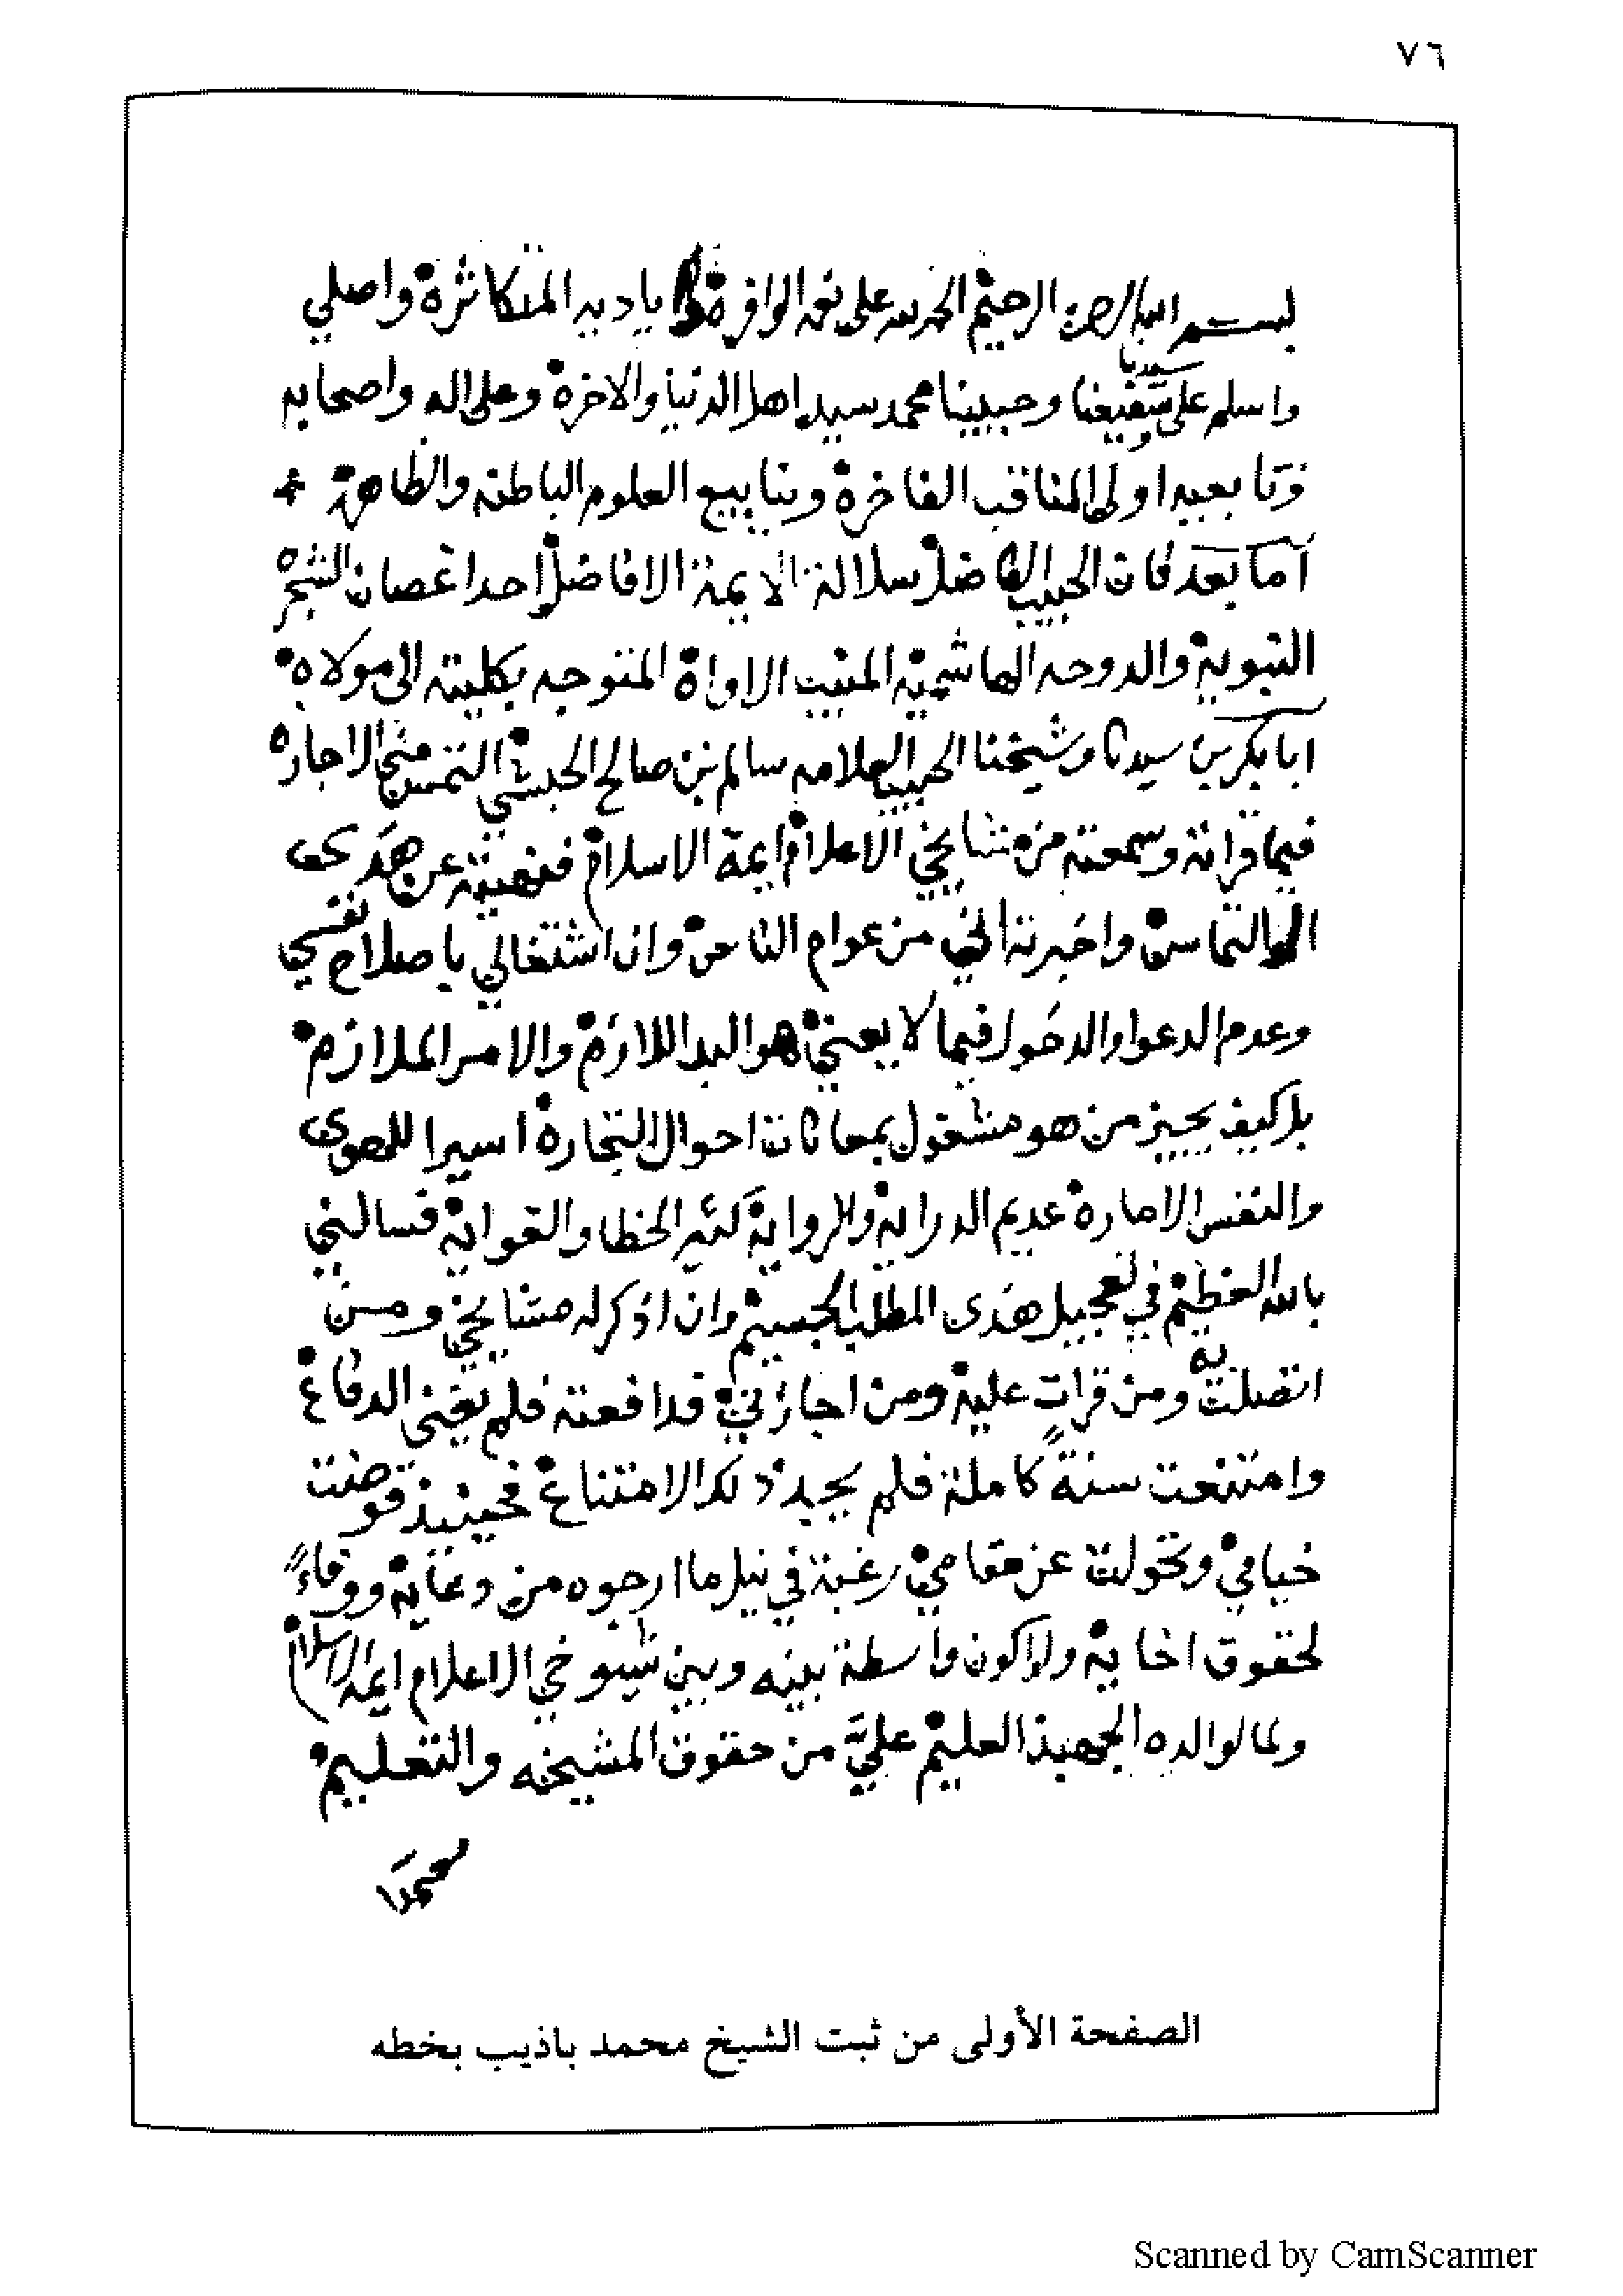 ٧٦
بسم الله الرحمن الرحيم الحمد لله على نعمه الوافرة واياديه المتكاثرة واصلي
واسلم على سيدنا وشفيعنا وحبيبنا محمد سيد اهل الدنيا والاخرة وعلى اله واصحابه
وتابعيه اولي المناقب الفاخرة وينابيع العلوم الباطنه والظاهرة
أما بعد فان الحبيب الفاضل سلالة الايمة الافاضل احد اغصان الشجره
النبوية والدوحه الهاشمية المنيب الاواة المتوجه بكليته الى مولاه
ابا بكر بن سيدنا وشيخنا الحبيب العلامه سالم بن صالح الحبشي التمس مني الاجازه
فيما قراته وسمعته من مشايخي الاعلام ايمة الاسلام فنهيته عن هذى
الالتماس واخبرته اني من عوام الناس وان اشتغالي باصلاح نفسي
وعدم الدعوا والدخول فيما لا يعني هو البد اللازم والامر الملازم
بل كيف يجيز من هو مشغول بمعانات احوال التجارة اسيرا للهوى
والنفس الامارة عديم الدراية والرواية كثير الخطا والغواية فسالني
بالله العظيم في تعجيل هذى المطلب الجسيم وان اذكر له مشايخي ومن
اتصلت به ومن قرات علية ومن اجازني فدافعته فلم يغنى الدفاع
وامتنعت سنةً كاملة فلم يجد ذلك الامتناع فحينيذ قوضت
خيامي وتحولت عن مقامي رغبة في نيل ما ارجوه من دعاية ووفاءً
لحقوق اخاية ولاكون واسطة بينه وبين شيوخي الاعلام ايمة الاسلام
ولما لوالده الجهبذ العليم عليَّ من حقوق المشيخه والتعليم
الصفحة الأولى من ثبت الشيخ محمد باذيب بخطه
Scanned by CamScanner